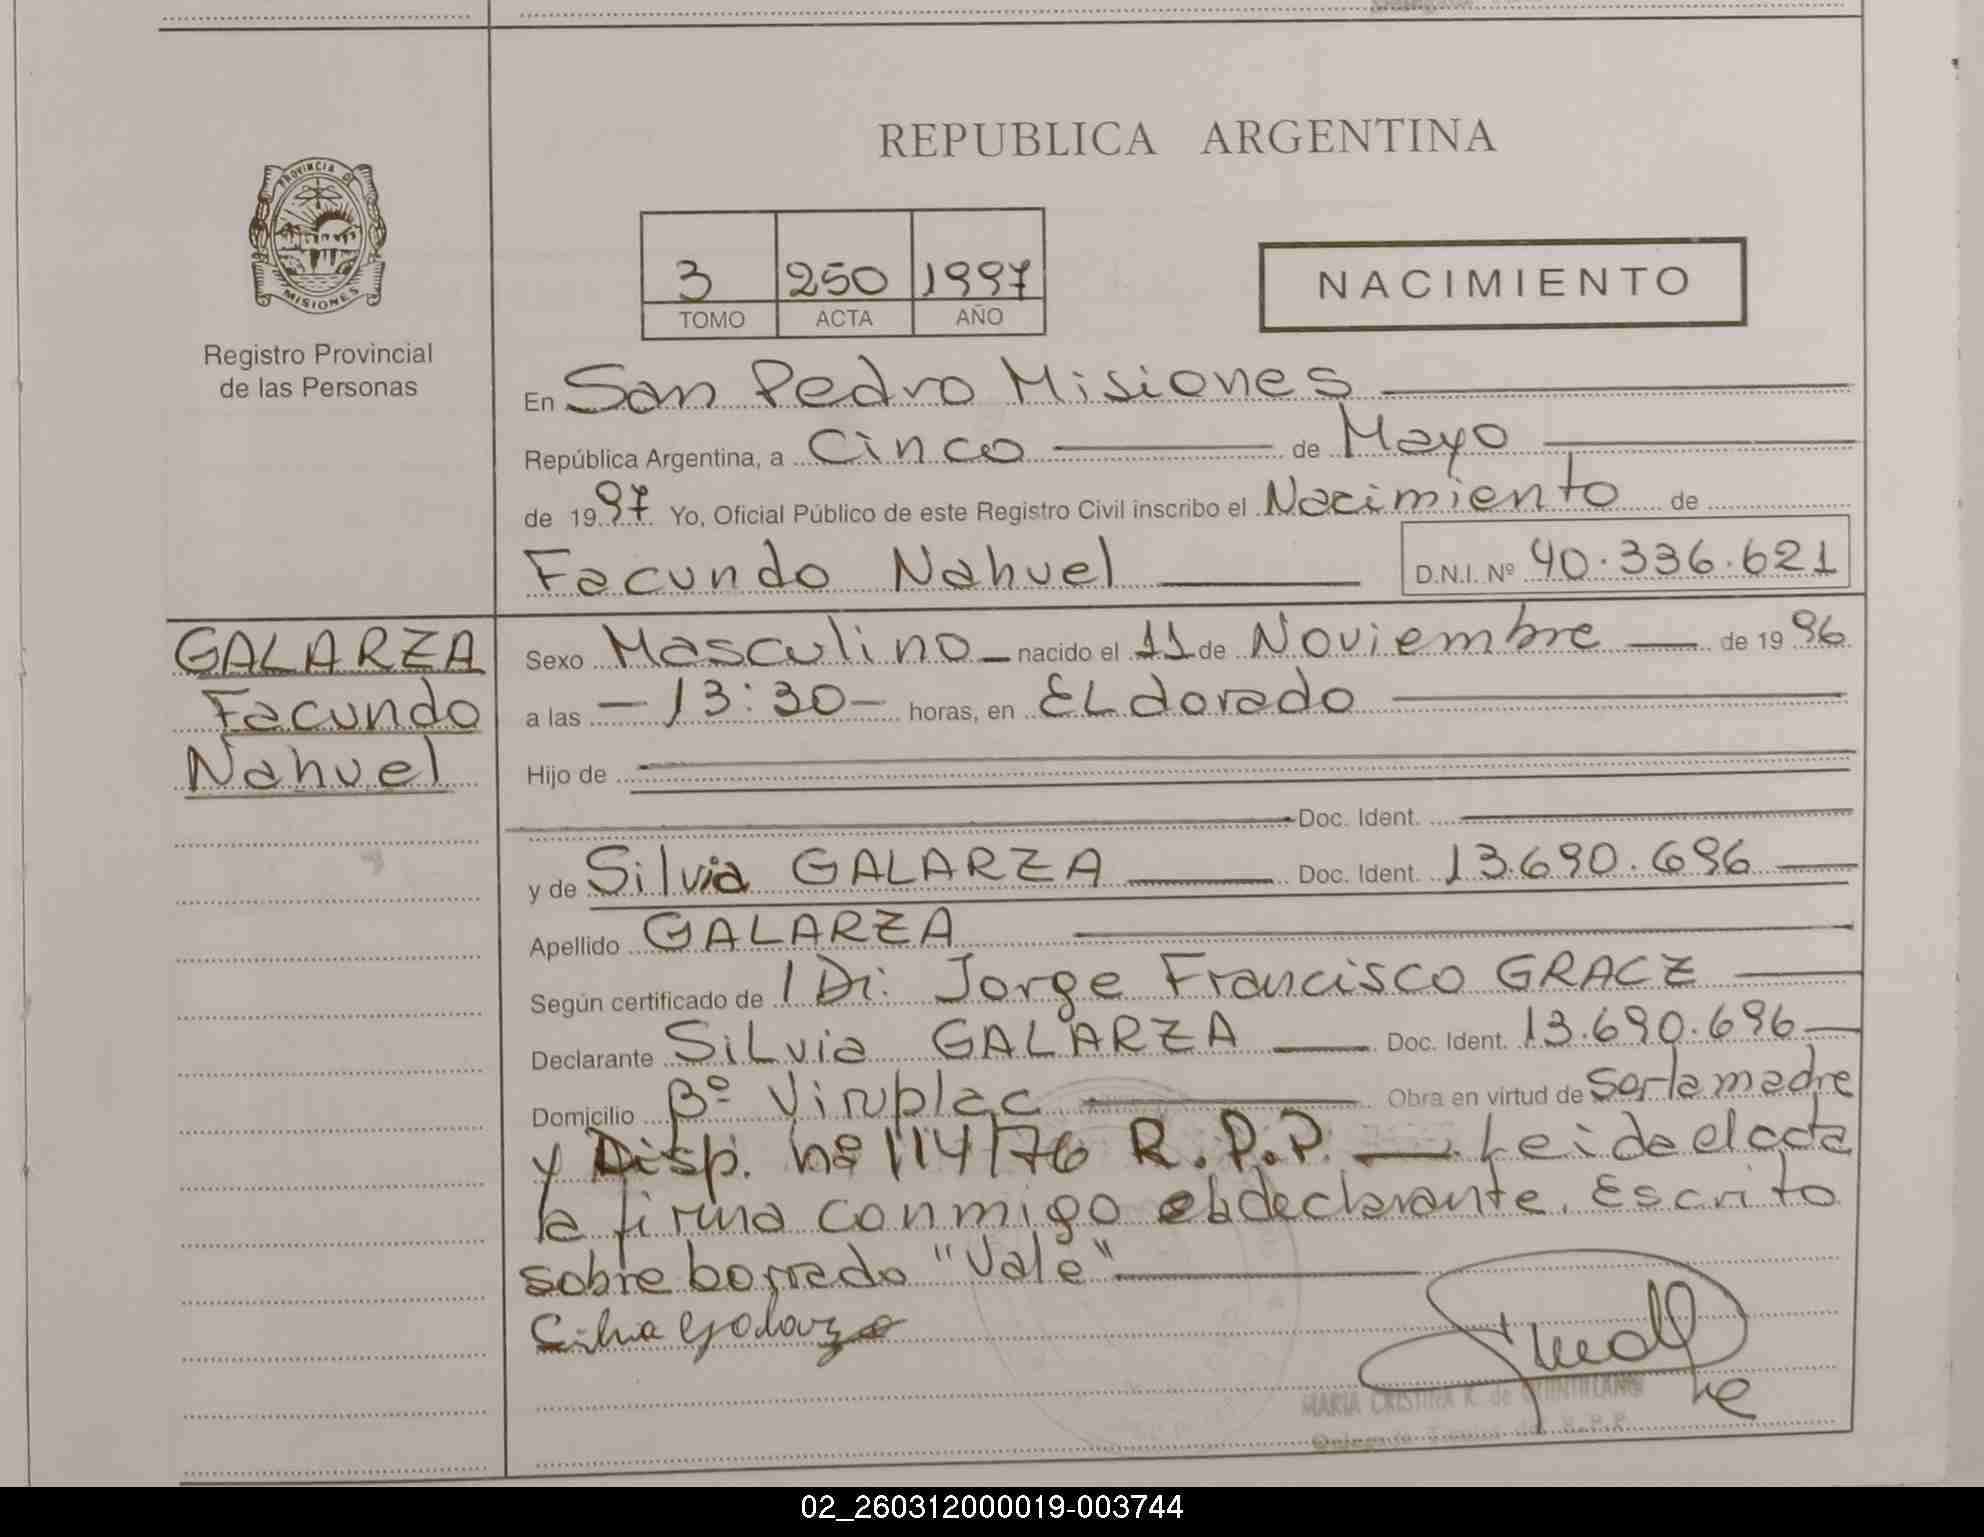 REPUBLICA ARGENTINA
PROVINCIA DE
MISIONES
Registro Provincial
de las Personas
3 250 1997
TOMO ACTA AÑO
NACIMIENTO
En San Pedro Misiones
República Argentina, a Cinco de Mayo
de 1997 Yo, Oficial Público de este Registro Civil inscribo el Nacimiento de
Facundo Nahuel D.N.I. Nº 40.336.621
GALARZA
Facundo
Nahuel
Sexo Masculino nacido el 11 de Noviembre de 1996
a las -13:30- horas, en ELdorado
Hijo de
Doc. Ident.
y de Silvia GALARZA Doc. Ident. 13.690.696
Apellido GALARZA
Según certificado de Jorge Francisco
Declarante SiLvia GALARZA Doc. Ident. 13.690.696
Domicilio Bº Obra en virtud de Ser la madre
y Disp. nº 114/76 R.P.P. Leida el acta
la firma conmigo el declarante. Escrito
sobre borrado "Vale"
Silvia Galarza
MARIA CRISTINA R. de
02_260312000019-003744